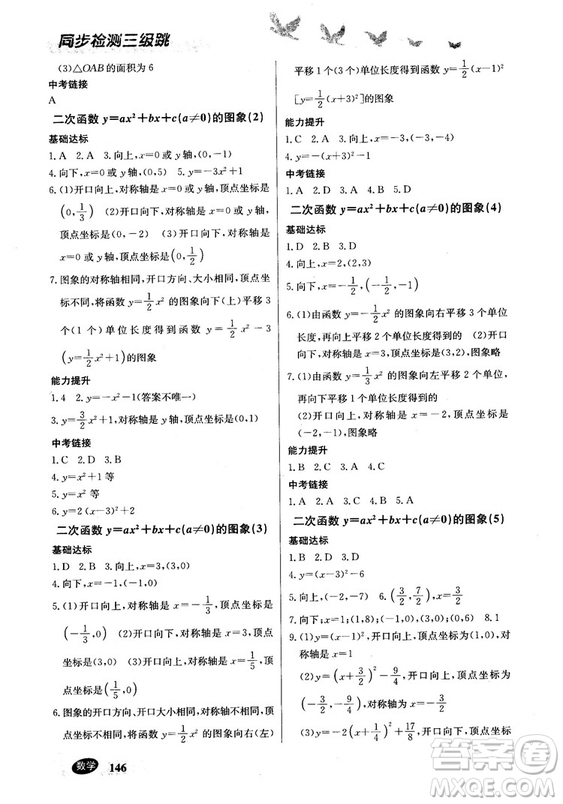 同步检测三级跳
(3)△OAB的面积为6
中考链接
A
二次函数 y=ax²+bx+c(a≠0)的图象(2)
基础达标
1.A 2.A 3.向上,x=0或y轴,(0,-1)
4.向下,x=0或y轴,(0,5) 5.y=-3x²
6.(1)开口向上,对称轴是x=0或y轴,顶点坐标是
(0,1/3) (2)开口向下,对称轴是x=0或y轴,
顶点坐标是(0,1/2)
7.图象的对称轴相同,开口方向、大小相同,顶点坐
标不同,将函数y=1/2x²的图象向下(上)平移3
个(1个)单位长度得到函数y=1/2x²-3
(y=1/2x²+1)的图象
能力提升
1.4 2.y=-x²-1(答案不唯一)
3.向下,对称轴是x=0或y轴,顶点坐标是(0,9)
中考链接
1.C 2.D 3.D
4.y=x²+1等
5.y=x²等
6.y=2(x-3)²+2
二次函数 y=ax²+bx+c(a≠0)的图象(3)
基础达标
1.D 2.A 3.向上,x=3,(3,0)
4.向下,
5.(1)开口向上,对称轴是x=-1/3,顶点坐标是
(-1/3,0) (2)开口向下,对称轴是x=1/5,顶点
坐标是(1/5,0)
6.图象的开口方向、大小相同,对称轴不同,顶点坐
标不同.将函数y=1/2x²的图象向右(左)
数学 146
平移1个(3个)单位长度得到函数y=1/2(x-1)²
[y=1/2(x+3)²]的图象
能力提升
1.C 2.A 3.-3,-4
4.y=-1/3x²-1
中考链接
1.B 2.A 3.A 4.D
二次函数 y=ax²+bx+c(a≠0)的图象(4)
基础达标
1.D 2.A 3.向上,x=2,(2,3)
4.向下,x=-1/2,(-1/2,-1)
5.-1
6.(1)由函数y=-1/2x²的图象向右平移3个单位
长度,再向上平移2个单位长度得到的 (2)开口
向下,对称轴是x=3,顶点坐标是(3,2),图象略
7.(1)由函数y=1/3x²的图象向左平移2个单位,
再向下平移1个单位长度得到的
(2)开口向上,对称轴是x=-2,顶点坐标是
(-2,-1),图象略
能力提升
1.B 2.D 3.C 4.B
中考链接
1.D 2.A 3.B 4.C
二次函数 y=ax²+bx+c(a≠0)的图象(5)
基础达标
1.B 2.A 3.D
4.y=-(x-1/2)²+9/4
5.向上,(-2,-7) 6.(3/2,7/2),向下
7.向下;x=1;(1,8);(-1,0),(3,0);(0,6) 8.1
9.(1)y=(x-1)²,开口向上,顶点坐标为(1,0),对
称轴为x=1
(2)y=(x+3/2)²-9/4,开口向上,顶点坐标为
(-3/2,-9/4),对称轴为x=-3/2
(3)y=-2(x+1/4)²+17/8,开口向下,顶点坐标为
作业帮
MXQE.COM